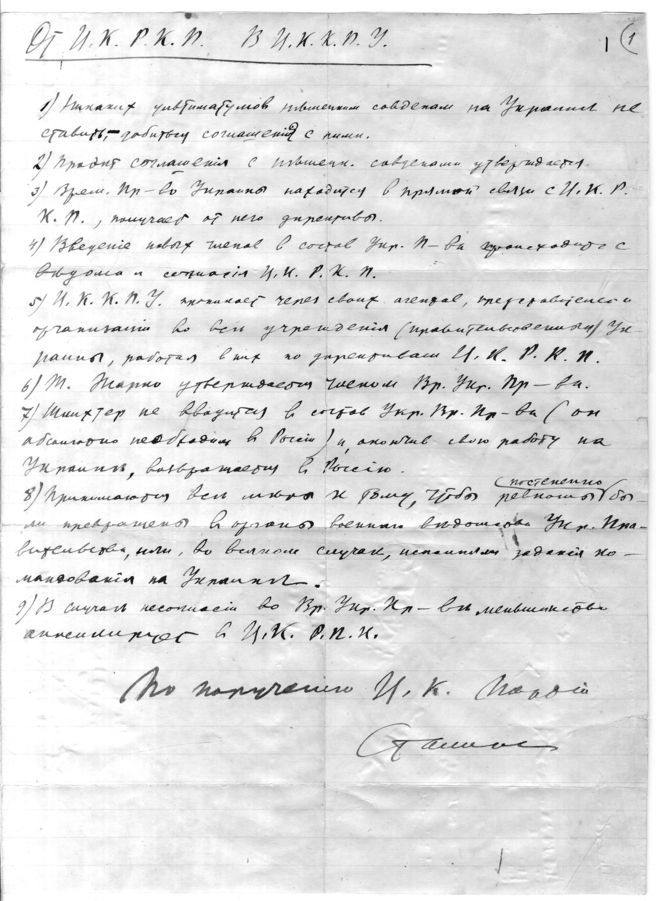 От Ц.К. Р.К.П. В Ц.К.К.П.У. 1
1) Никаких ультиматумов немецким совдепам на Украине не
ставить, – добиться соглашений с ними.
2) Проект соглашения с немецк. совдепами утверждается.
3) Врем. Пр–во Украины находится в прямой связи с Ц.К. Р.
К.П., получает от него директивы.
4) Введение новых членов в состав Укр. П–ва происходит с
ведома и согласия Ц.К. Р.К.П.
5) Ц.К.К.П.У. проникает через своих агентов, представителей и
организации во все учреждения (правительственныя) Ук-
раины, работая в них по директивам Ц.К. Р.К.П.
6) Т. Жарко утверждается членом Вр. Укр. Пр–ва.
7) Шлихтер не вводится в состав Укр. Вр. Пр–ва (он
абсолютно необходим в России) и, окончив свою работу на
Украине, возвращается в Россию.
8) Принимаются все меры к тому, чтобы ревкомы (постепенно) бы-
ли превращены в органы военного ведомства Укр. Пра-
вительства, или, во всяком случае, исполняли задания ко-
мандования на Украине.
9) В случае несогласий во Вр. Укр. Пр–ве меньшинство
апеллирует в Ц.К. Р.П.К.
По поручению Ц.К. Партии
Сталин